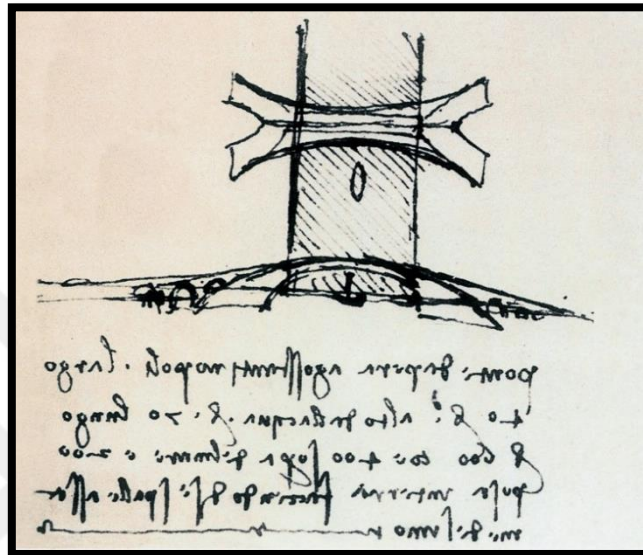 ponte da pera a gosstantinopoli . largo
40 br alto dallacqua . br . 70 lungo
br 600 cioe 400 sopra del mare e 200
posa in terra faciendo di se spalle a sse
medesimo